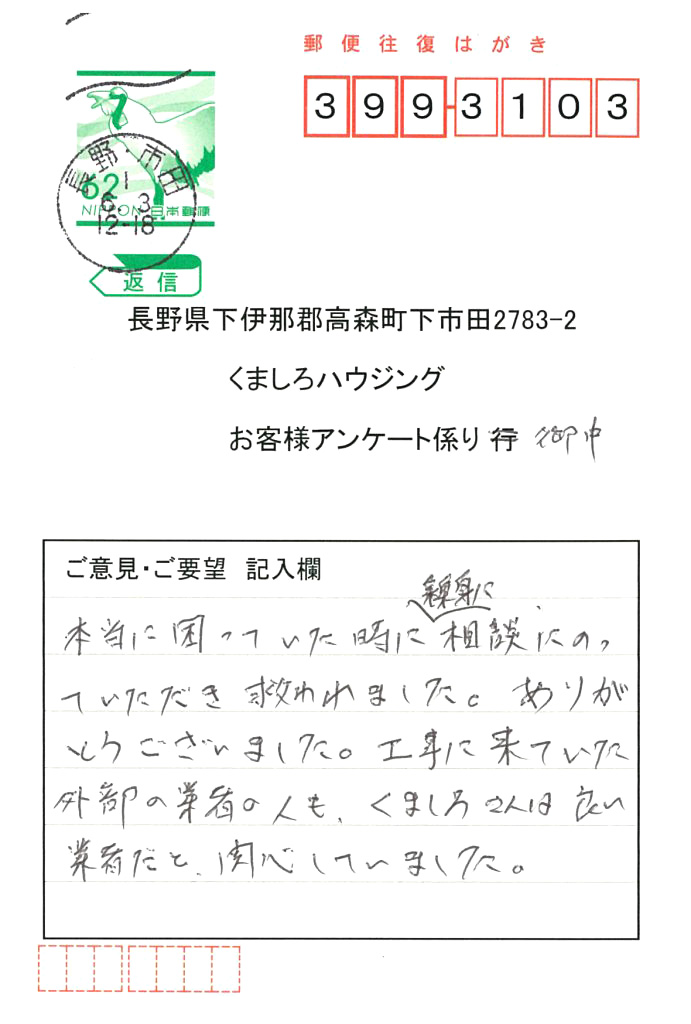 郵便往復はがき
399-3103
長野・市田
62
1
6. 3
12-18
NIPPON 日本郵便
返信
長野県下伊那郡高森町下市田2783-2
くましろハウジング
お客様アンケート係り 行 御中
ご意見・ご要望 記入欄
親身に
本当に困っていた時に相談にのっ
ていただき救われました。ありが
とうございました。工事に来ていた
外部の業者の人も、くましろさんは良い
業者だと、関心していました。